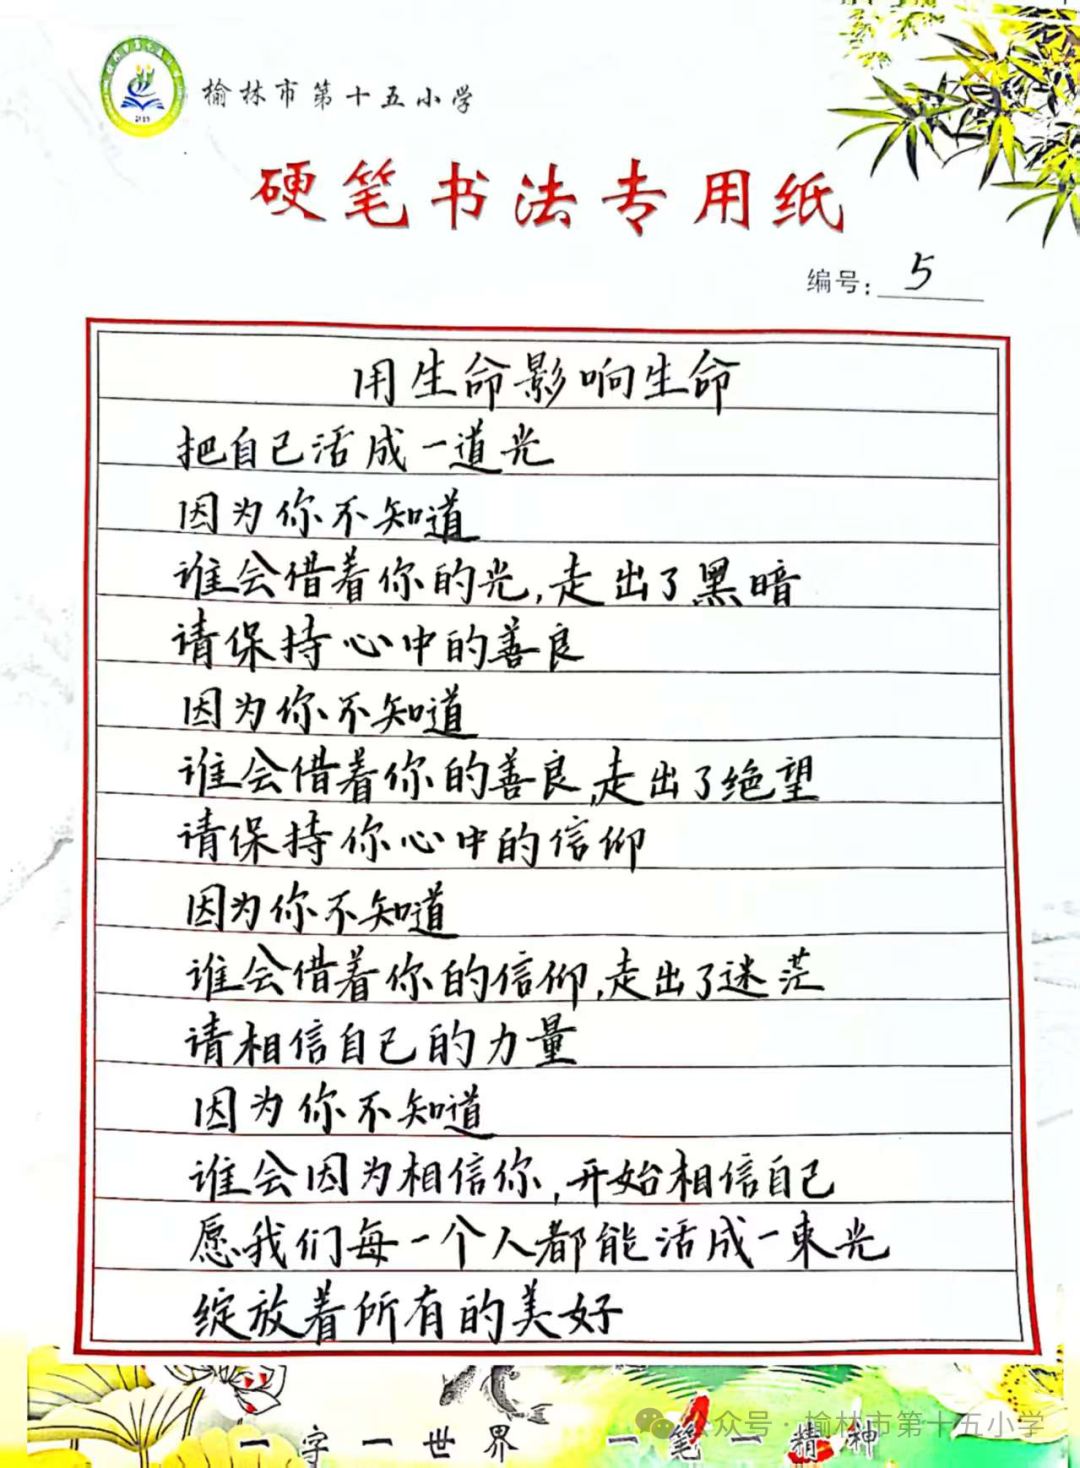 榆林市第十五小学
硬笔书法专用纸
编号：5
用生命影响生命
把自己活成一道光
因为你不知道
谁会借着你的光,走出了黑暗
请保持心中的善良
因为你不知道
谁会借着你的善良,走出了绝望
请保持你心中的信仰
因为你不知道
谁会借着你的信仰,走出了迷茫
请相信自己的力量
因为你不知道
谁会因为相信你,开始相信自己
愿我们每一个人都能活成一束光
绽放着所有的美好
一字一世界 一笔一精神
公众号·榆林市第十五小学